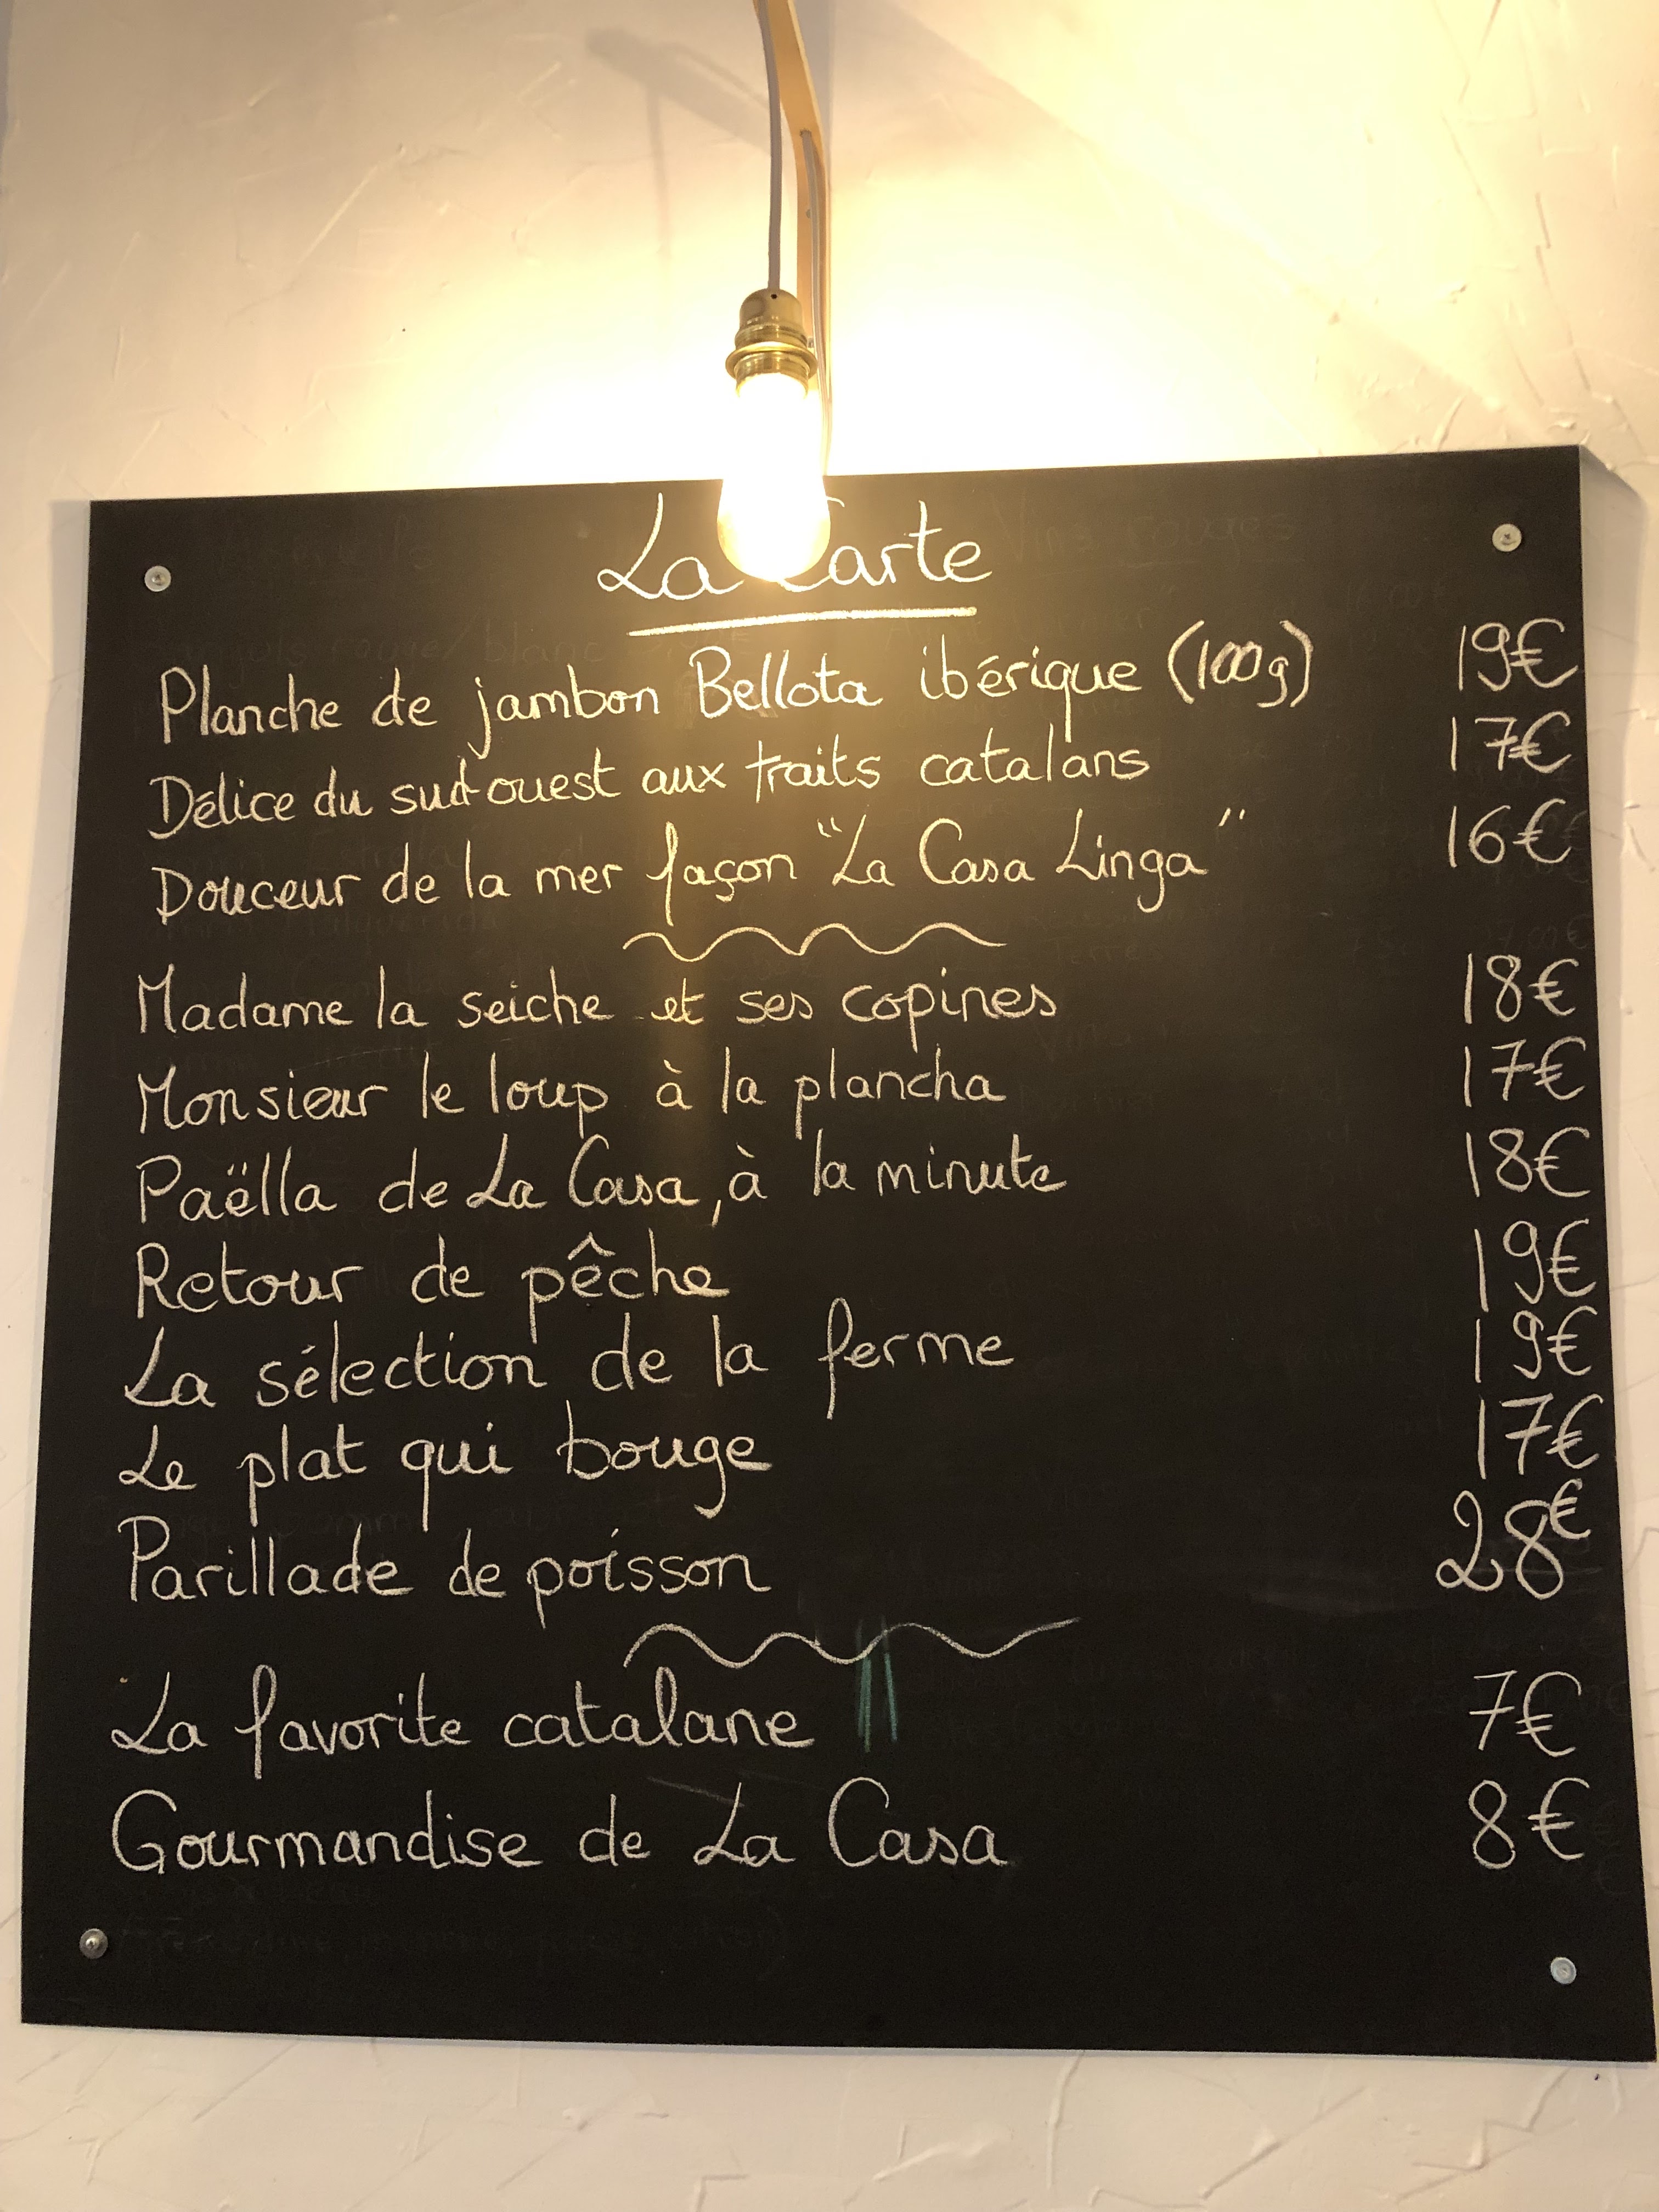 La Carte
Planche de jambon Bellota ibérique (100g) 19€
Délice du sud-ouest aux traits catalans 17€
Douceur de la mer façon "La Casa Linga" 16€
Madame la seiche et ses copines 18€
Monsieur le loup à la plancha 17€
Paëlla de La Casa, à la minute 18€
Retour de pêche 19€
La sélection de la ferme 19€
Le plat qui bouge 17€
Parillade de poisson 28€
La favorite catalane 7€
Gourmandise de La Casa 8€